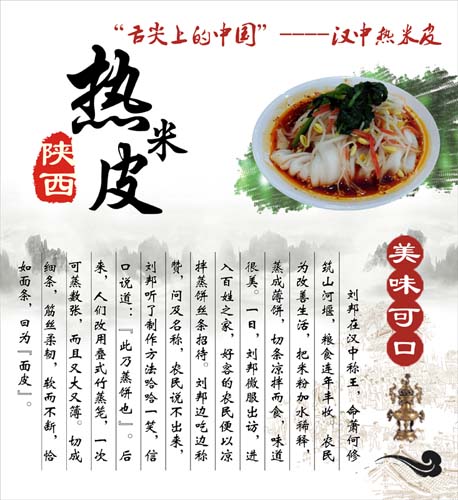 “舌尖上的中国”----汉中热米皮
热米皮
陕西
美味可口
刘邦在汉中称王,命萧何修
筑山河堰,粮食连年丰收。农民
为改善生活,把米粉加水稀释,
蒸成薄饼,切条凉拌而食,味道
很美。一日,刘邦微服出访,进
入百姓之家,好客的农民便以凉
拌蒸饼丝条招待。刘邦边吃边称
赞,问及名称,农民说不出来,
刘邦听了制作方法哈哈一笑,信
口说道:『此乃蒸饼也』。后
来,人们改用叠式竹蒸笼,一次
可蒸数张,而且又大又薄。切成
细条,筋丝柔韧,软而不断,恰
如面条,曰为『面皮』。